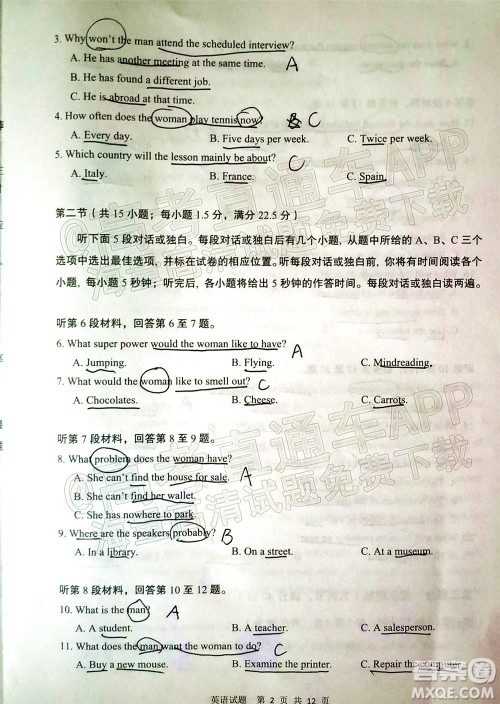 3. Why won't the man attend the scheduled interview?
A. He has another meeting at the same time. A
B. He has found a different job.
C. He is abroad at that time.
4. How often does the woman play tennis now? C
A. Every day. B. Five days per week. C. Twice per week.
5. Which country will the lesson mainly be about? C
A. Italy. B. France. C. Spain.
第二节（共 15 小题；每小题 1.5 分，满分 22.5 分）
听下面 5 段对话或独白。每段对话或独白后有几个小题，从题中所给的 A、B、C 三个
选项中选出最佳选项，并标在试卷的相应位置。听每段对话或独白前，你将有时间阅读各个
小题，每小题 5 秒钟；听完后，各小题将给出 5 秒钟的作答时间。每段对话或独白读两遍。
听第 6 段材料，回答第 6 至 7 题。
6. What super power would the woman like to have? A
A. Jumping. B. Flying. C. Mindreading.
7. What would the woman like to smell out? C
A. Chocolates. B. Cheese. C. Carrots.
听第 7 段材料，回答第 8 至 9 题。
8. What problem does the woman have? A
A. She can't find the house for sale.
B. She can't find her wallet.
C. She has nowhere to park.
9. Where are the speakers probably? B
A. In a library. B. On a street. C. At a museum.
听第 8 段材料，回答第 10 至 12 题。
10. What is the man? A
A. A student. B. A teacher. C. A salesperson.
11. What does the man want the woman to do? C
A. Buy a new mouse. B. Examine the printer. C. Repair the computer.
英语试题 第 2 页 共 12 页
@高考直通车APP
海量高清试题免费下载
@高考直通车APP
海量高清试题免费下载
答案圈
MXQE.COM